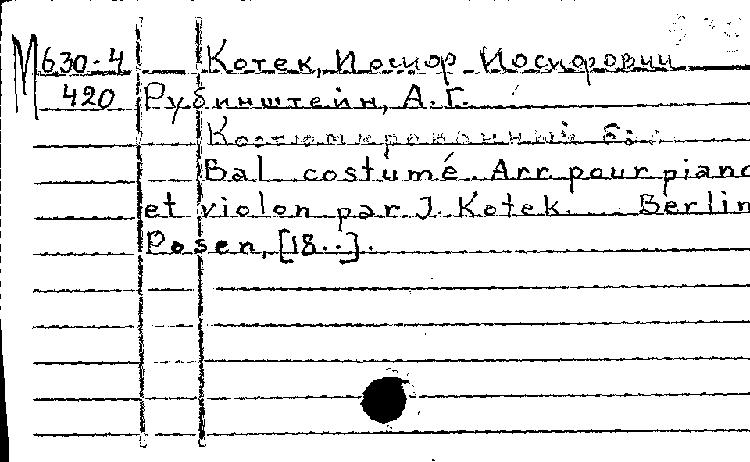 М 630-4 Котек, Иосиф Иосифович
420 Рубинштейн, А. Г.
Костюмированный
Bal costumé. Arr. pour piano
et violon par J. Kotek. Berlin
Posen, [18..].